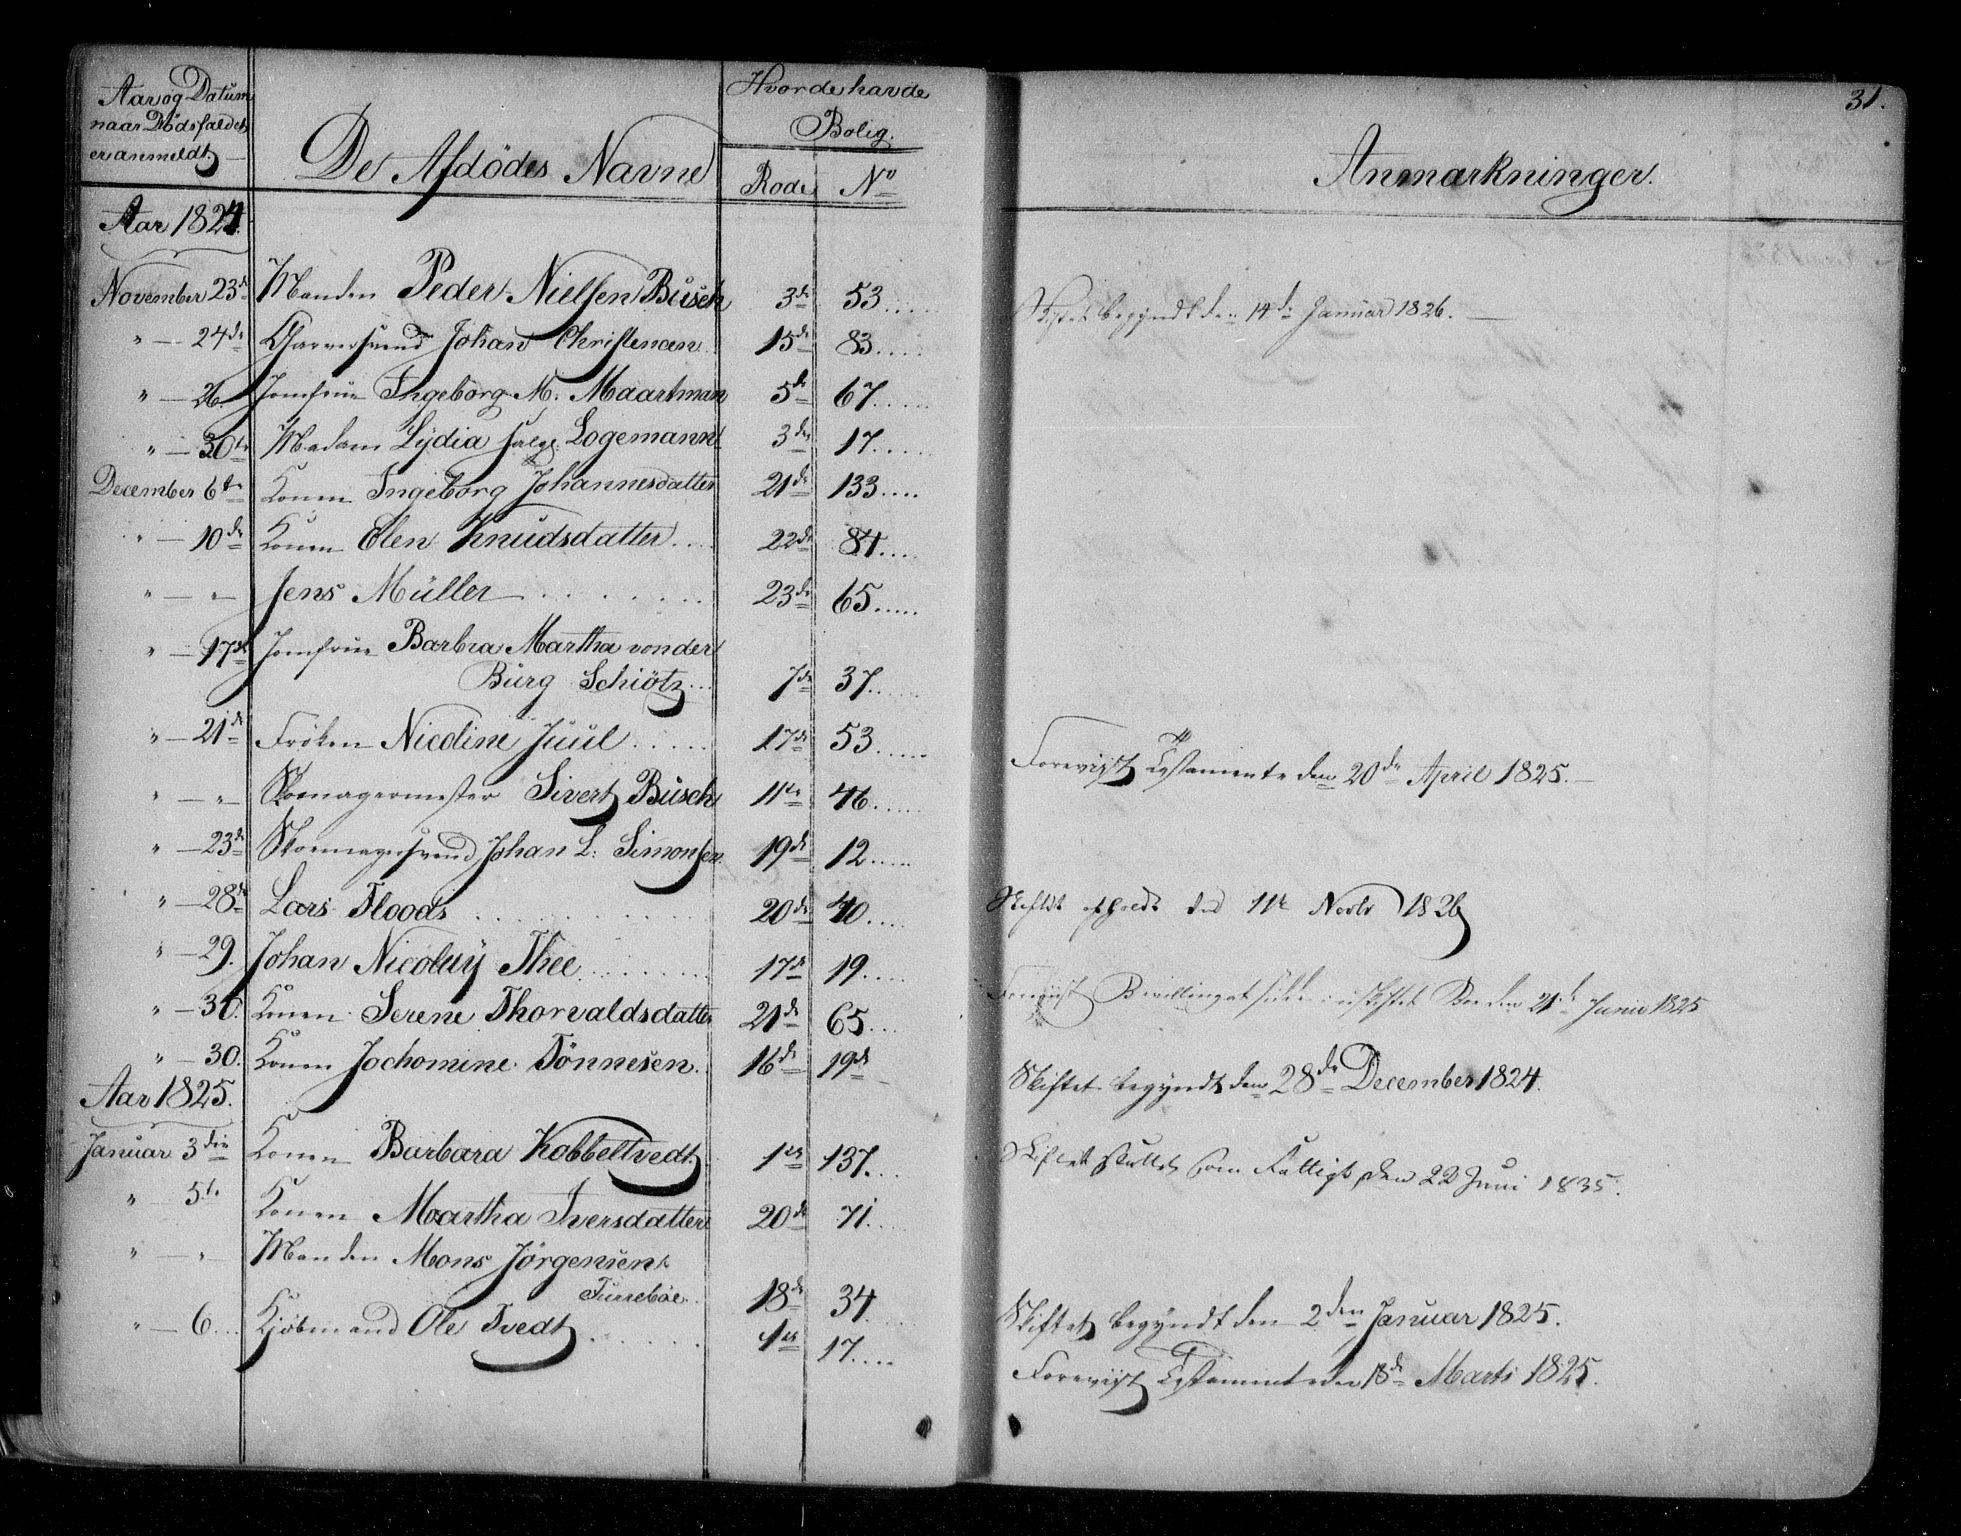 31.
Aar og Datum
naar Dödsfaldet
er anmeldt.
De Afdödes Navne
Hvor de havde
Bolig.
Rode No
Anmærkninger.
Aar 1824.
November 23de Manden Peder Nielsen Busch 3de 53..... Skiftet begyndt den 14de Januar 1826.
" — 24de Garversvend Johan Christensen 15de 83....
" — 26. Jomfrue Ingeborg M. Maartman 5te 67.....
" — 30te Madam Lydia salg. Logemann 3die 17.....
December 6te Konen Ingeborg Johannesdatter 21de 133....
" — 10de Konen Elen Knudsdatter.... 22de 84....
" — " — Jens Müller 23de 65.....
" — 17de Jomfrue Barbra Martha von der
Burg Schiötz... 7de 37.....
" — 21de Fröken Nicoline Juul..... 17de 53..... Foreviist Testamente den 20de April 1825.
" — " — Skomagermester Sivert Busch 11te 46.....
" — 23de Skomagersvend Johan L: Simonsen 19de 12.....
" — 28de Lars Floods 20de 40.... Skiftet den 11te Novbr 1826
" — 29. Johan Nicolay Thee 17de 19.... Foreviist Bevilling at sidde i uskiftet Boe den 21de Junii 1825
" — 30. Konen Serene Thorvaldsdatter 21de 65...
" — 30. Konen Jochomine Tönnesen.. 16de 19de Skiftet begyndt den 28de December 1824.
Aar 1825.
Januar 3die Konen Barbara Kobbeltvedt. 1ste 137.... Skiftet sluttet som Fattigt den 22 Juni 1835.
" — 5te Konen Martha Iversdatter 20de 71....
" — " Manden Mons Jörgensen
Turreböe.. 18de 34 Skiftet begyndt den 2den Januar 1825.
" — 6... Kjöbmand Ole Tvedt....... 1ste 17.... Foreviist Testamente den 18de Marts 1825.